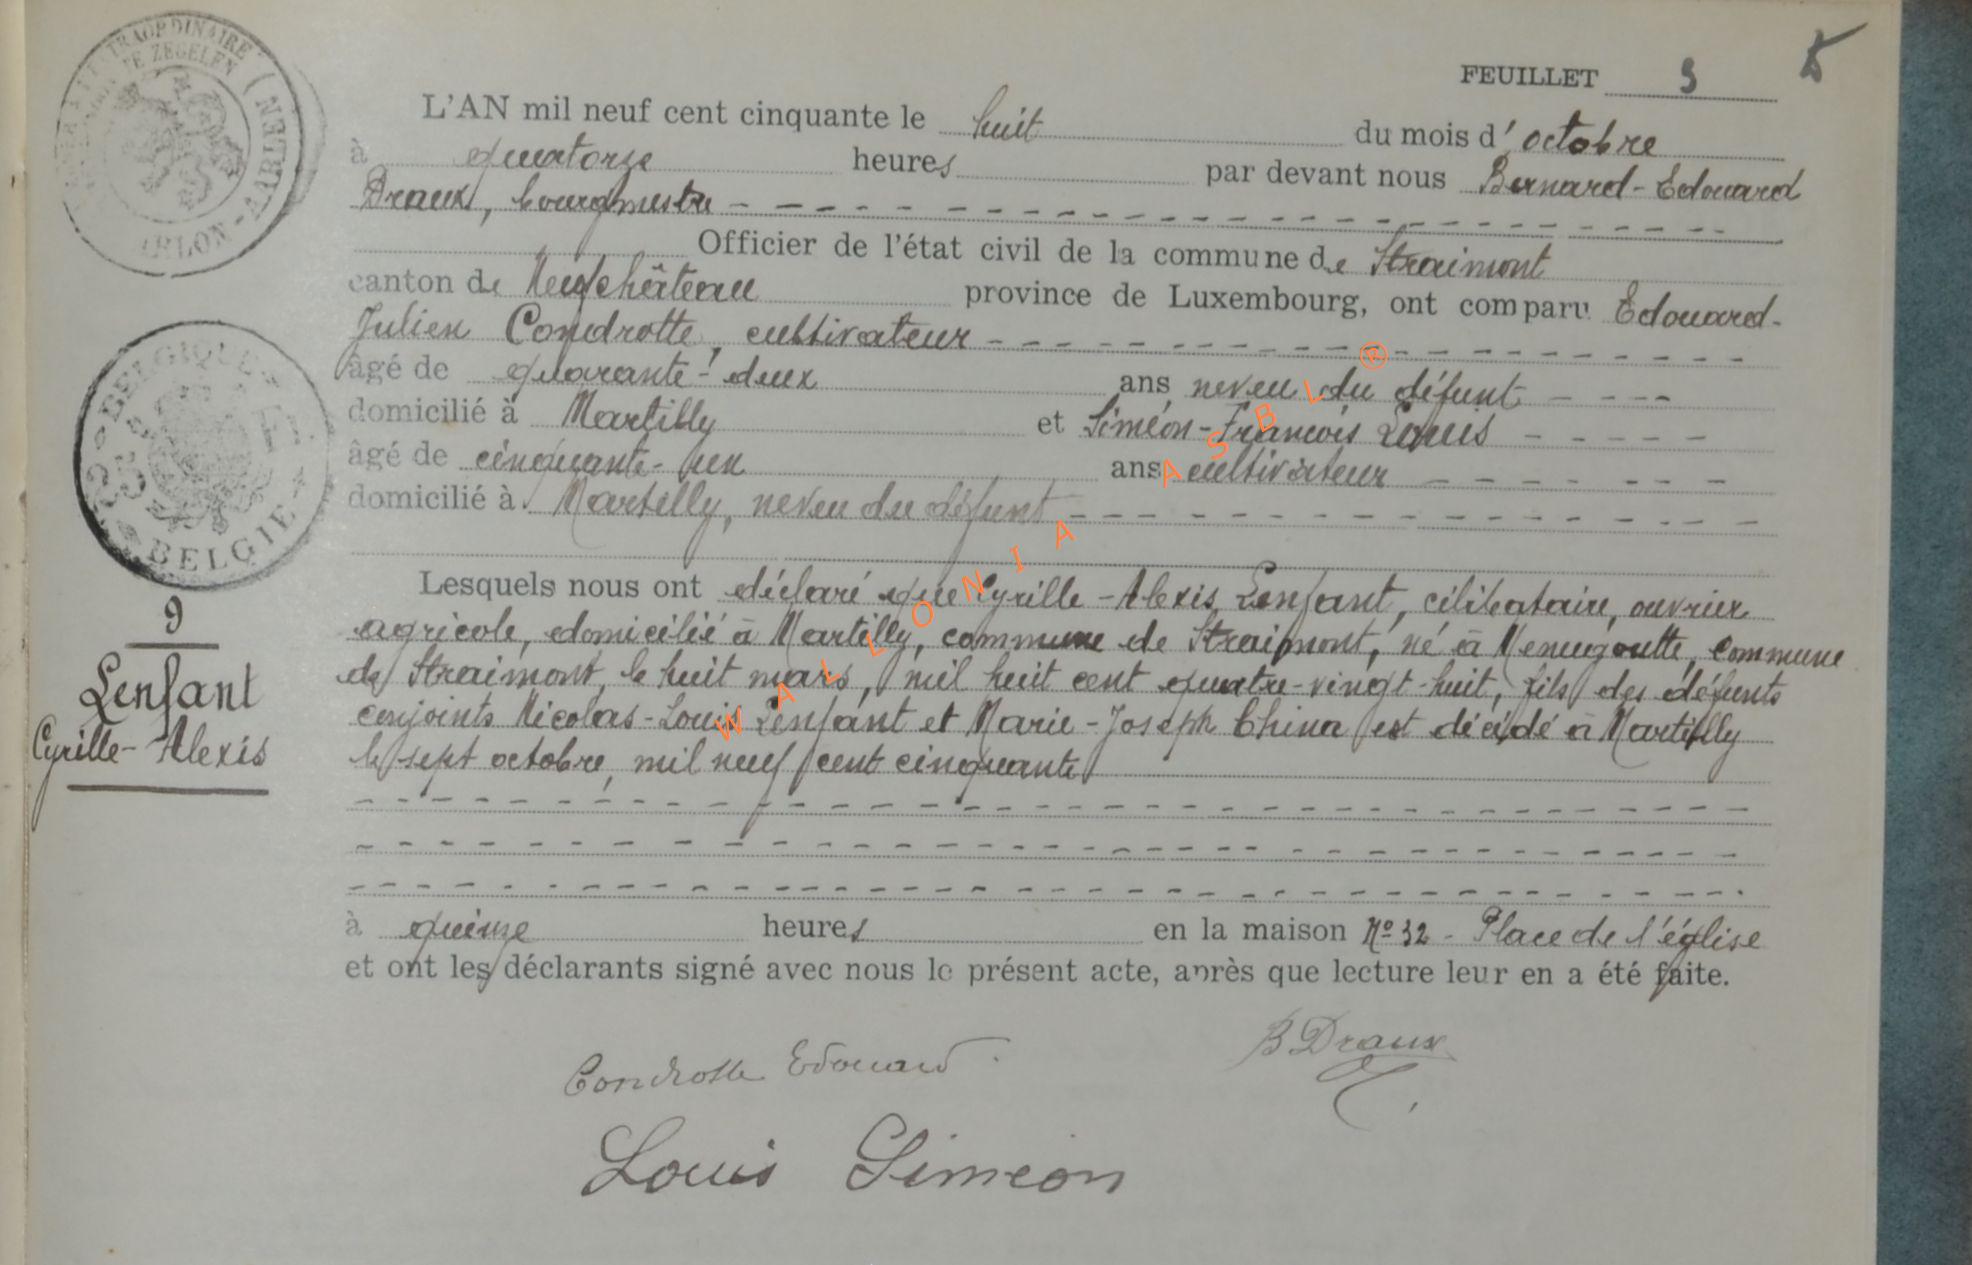 FEUILLET 5
L'AN mil neuf cent cinquante le huit du mois d'octobre
à quatorze heures par devant nous Bernard-Edouard
Draux, bourgmestre
Officier de l'état civil de la commune de Straimont
canton de Neufchâteau province de Luxembourg, ont comparu Edouard-
Julien Condrotte, cultivateur
âgé de quarante-deux ans neveu du défunt
domicilié à Martilly et Siméon-François Louis
âgé de cinquante-un ans cultivateur
domicilié à Martilly, neveu du défunt
Lesquels nous ont déclaré que Cyrille-Alexis Lenfant, célibataire, ouvrier
agricole, domicilié à Martilly, commune de Straimont, né à Menugoutte, commune
de Straimont, le huit mars, mil huit cent quatre-vingt-huit, fils des défunts
conjoints Nicolas-Louis Lenfant et Marie-Joseph China est décédé à Martilly
le sept octobre, mil neuf cent cinquante
à quinze heures en la maison No 32 - Place de l'église
et ont les déclarants signé avec nous le présent acte, après que lecture leur en a été faite.
9
Lenfant
Cyrille-Alexis
Condrotte Edouard
B Draux
Louis Siméon
BELGIQUE
BELGIË
ARLON - AARLEN
WALLONIA ASBL ®